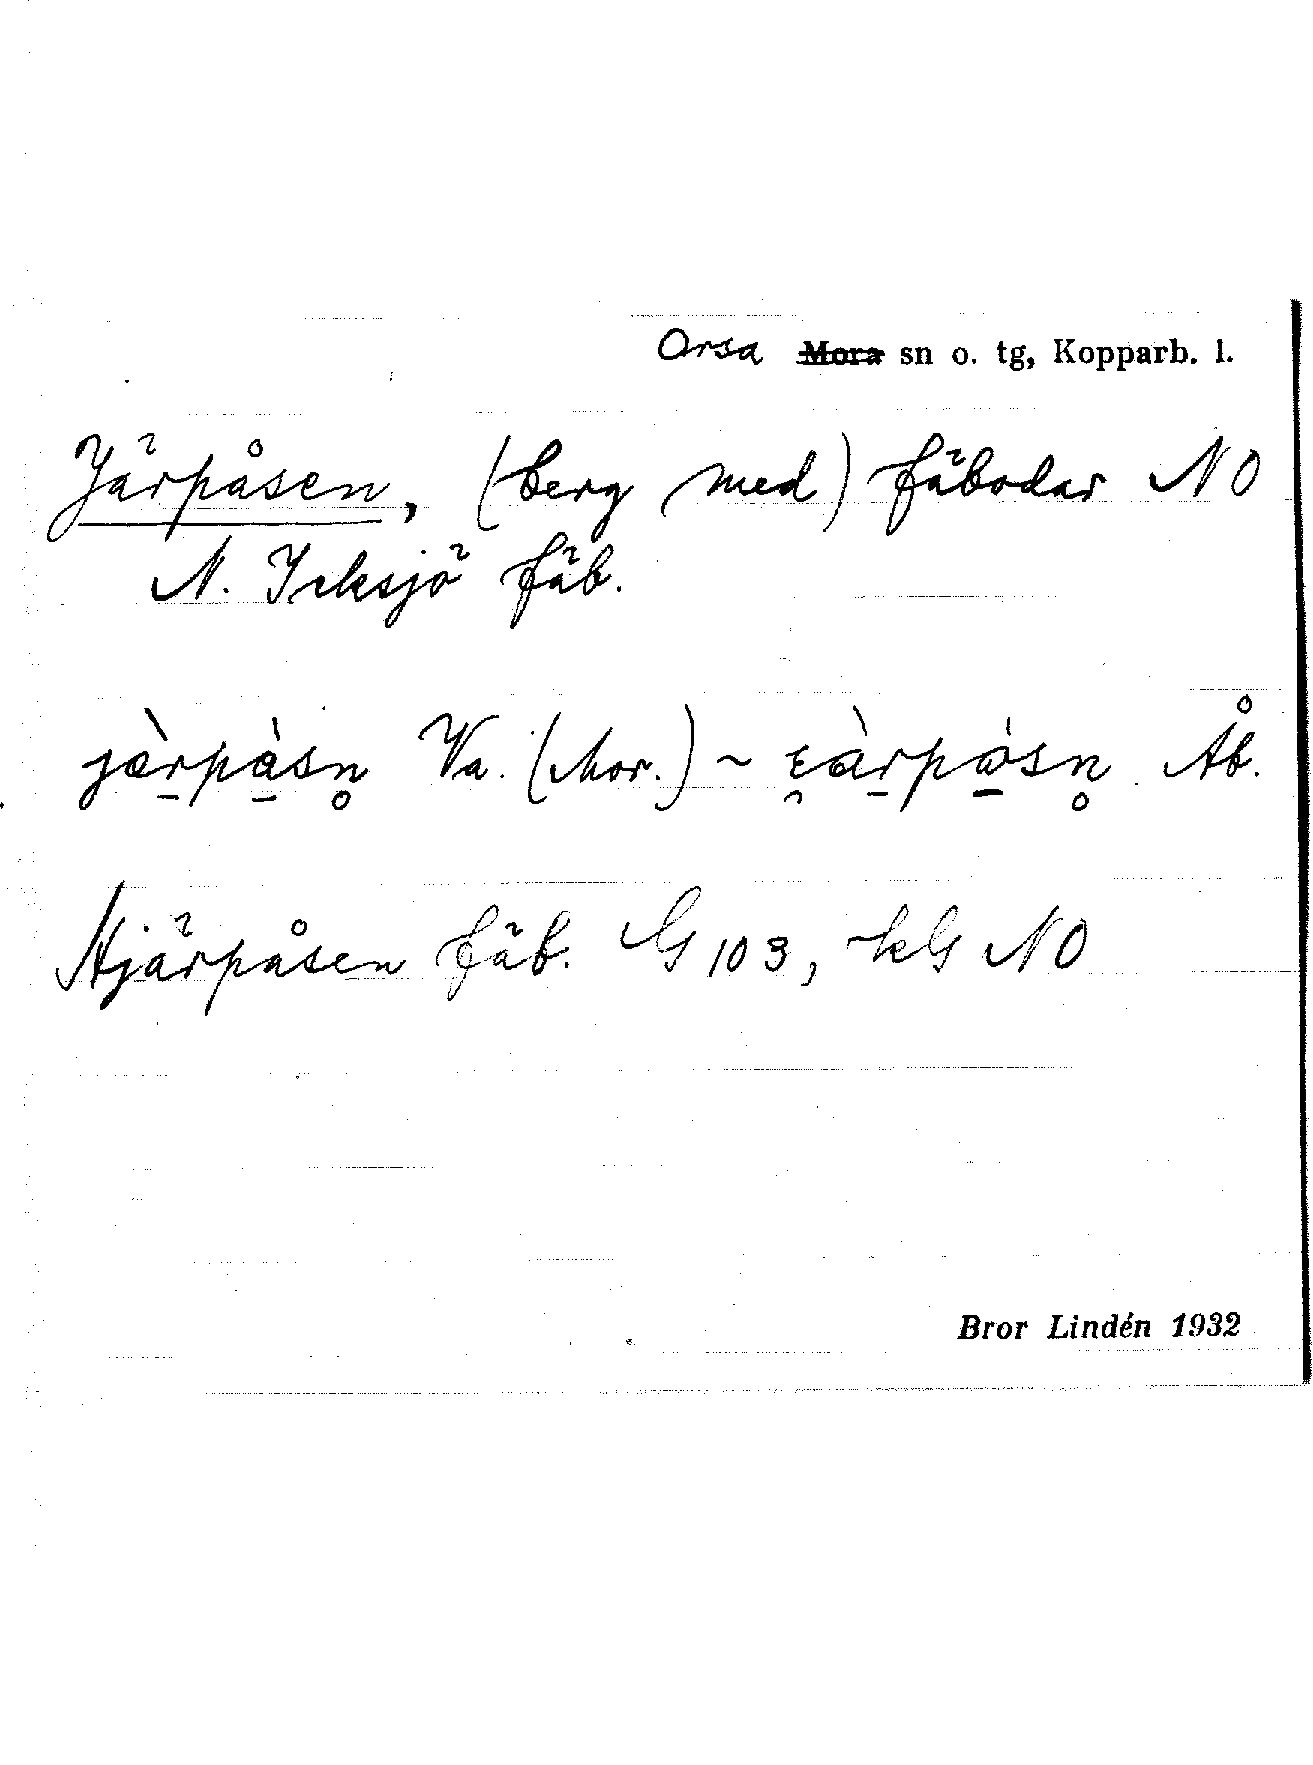 Orsa ~~Mora~~ sn o. tg, Kopparb. l.
Järpåsen, (berg med) fäbodar NO
N. Icksjö fäb.
Va. (Mor.) ~ Åb.
Hjärpåsen fäb. G 103, kG NO
Bror Lindén 1932